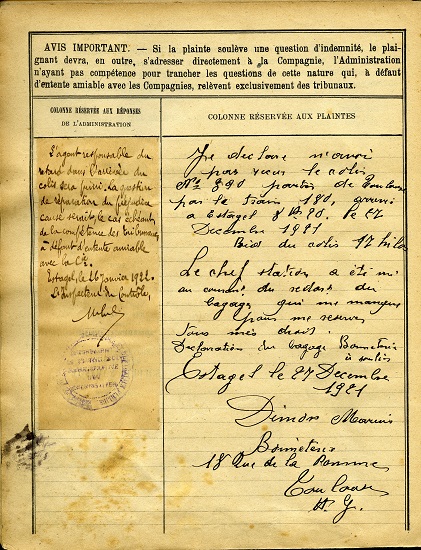 AVIS IMPORTANT. — Si la plainte soulève une question d'indemnité, le plai-
gnant devra, en outre, s'adresser directement à la Compagnie, l'Administration
n'ayant pas compétence pour trancher les questions de cette nature qui, à défaut
d'entente amiable avec les Compagnies, relèvent exclusivement des tribunaux.
COLONNE RÉSERVÉE AUX RÉPONSES
DE L'ADMINISTRATION
L'agent responsable du
retard dans l'arrivée du
colis sera puni. La question
de réparation du préjudice
causé serait, le cas échéant
de la compétence des tribunaux
à défaut d'entente amiable
avec la Cie.
Estagel, le 26 janvier 1922.
L'inspecteur du Contrôle,
COLONNE RÉSERVÉE AUX PLAINTES
Je declare n'avoir
pas reçu le colis
No 590 partie de Toulouse
par le train 180, arrivé
a Estagel 8 H 20. le 27
Decembre 1921
Poids du colis 17 kilos
Le chef station a été mi
au courant du retard du
bagage qui me manque
pour me reserver
tous mes droits.
Declaration du bagage Bonneterie
Estagel le 27 Decembre
1921
Marius
Bonneterie
18 Rue de la Pomme
Toulouse
H. G.